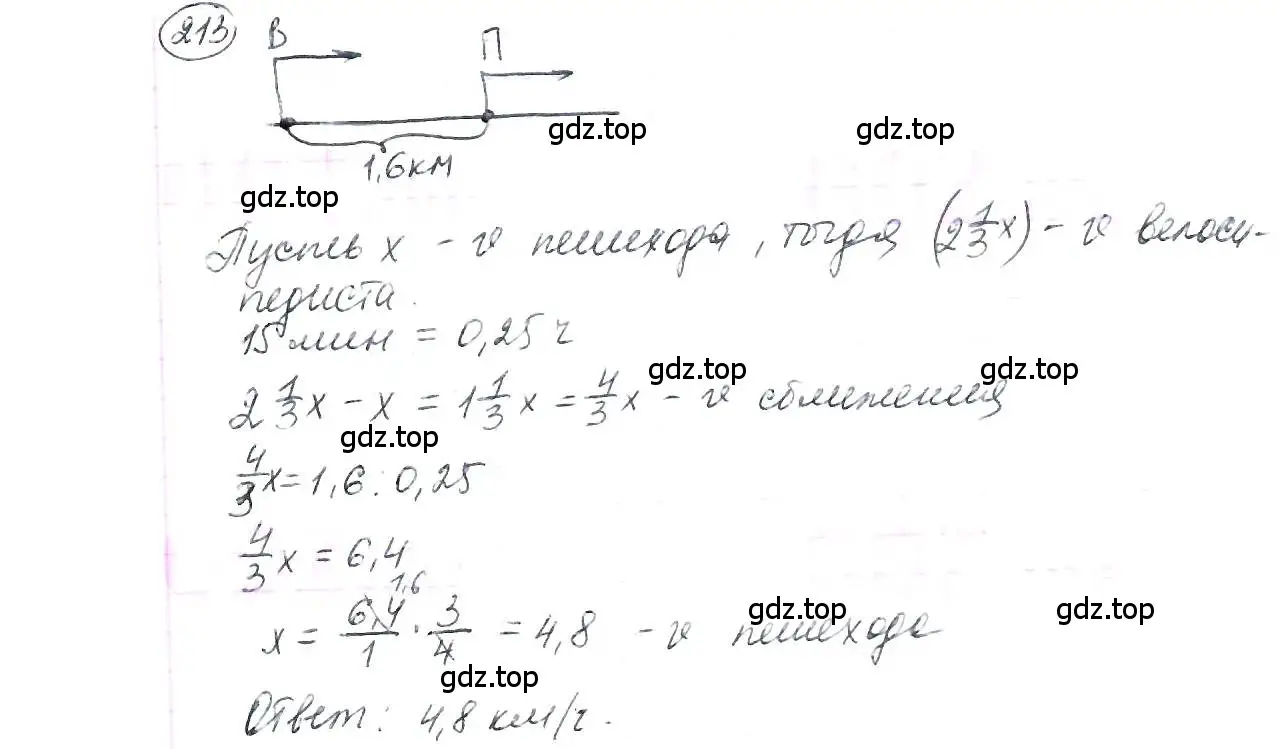 213
В
П
gdz.top
gdz.top
1,6 км
gdz.top
Пусть x - v пешехода, тогда (2 1/3 x) - v велоси-
педиста.
15 мин = 0,25 ч
gdz.top
gdz.top
2 1/3 x - x = 1 1/3 x = 4/3 x - v сближения
gdz.top
4/3 x = 1,6 : 0,25
4/3 x = 6,4
1,6
x = 6,4/1 · 3/4 = 4,8 - v пешехода
gdz.top
gdz.top
gdz.top
Ответ: 4,8 км/ч.